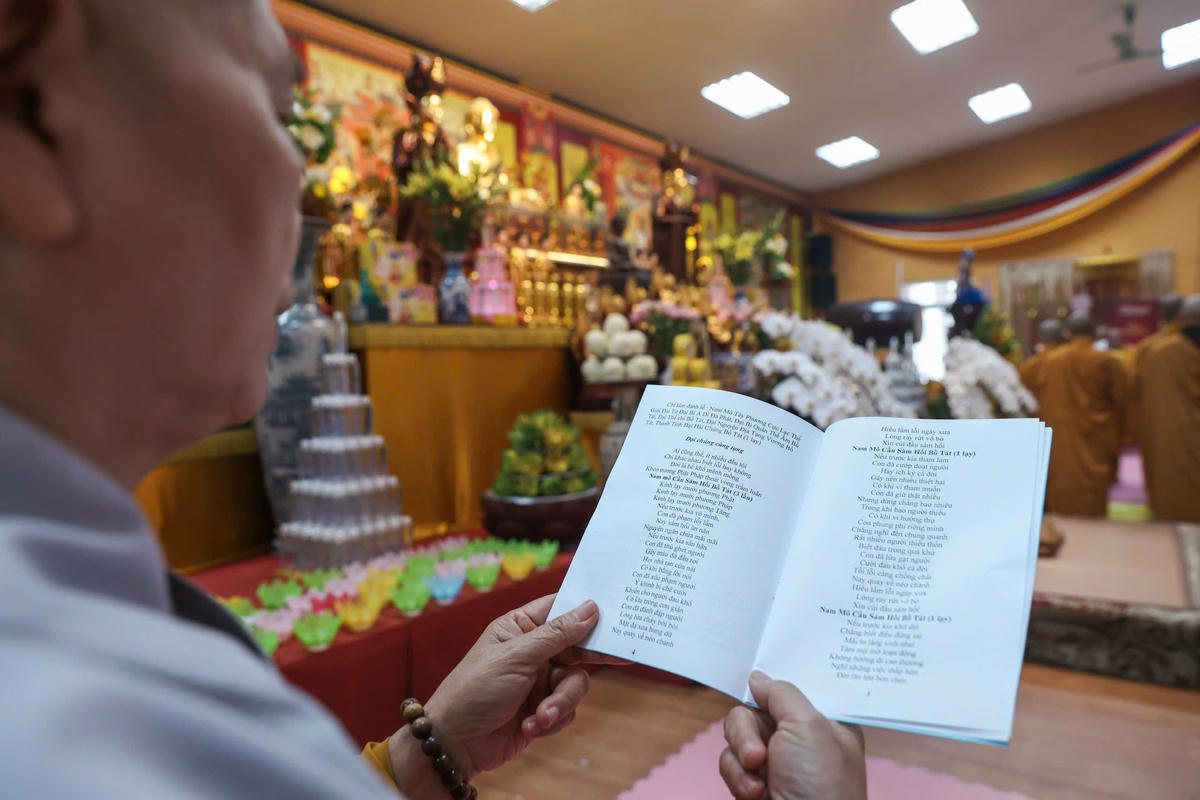 Chí tâm đảnh lễ : Nam Mô Tây Phương Cực Lạc Thế
Giới Đại Từ Đại Bi A Di Đà Phật, Đại Bi Quán Thế Âm Bồ
Tát, Đại Thế chí Bồ Tát, Đại Nguyện Địa Tạng Vương Bồ
Tát, Thanh Tịnh Đại Hải Chúng Bồ Tát (1 lạy)
Đại chúng cùng tụng
Ai cũng thế, ít nhiều đều tội
Chỉ khác nhau biết lỗi hay không
Đời là bể khổ mênh mông
Nương Phật Pháp thoát vòng trầm luân
Nam mô Cầu Sám Hối Bồ Tát (3 lần)
Kính lạy mười phương Phật
Kính lạy mười phương Pháp
Kính lạy mười phương Tăng
Nếu trước kia vô minh,
Con đã phạm lỗi lầm
Nay sám hối ăn năn
Nguyện ngăn chừa mãi mãi
Nếu trước kia sân hận
Con đã thù ghét người
Gây máu đổ đầu rơi
Hay nhà tan cửa nát
Có khi bằng lời nói
Con đã xúc phạm người
Ý khinh bỉ chê cười
Khiến cho người đau khổ
Có khi trong cơn giận
Con đã đánh đập người
Lòng lửa cháy bời bời
Mặt đỏ xoa hung dữ
Nay quay về nẻo chánh
4
Hiểu lầm lỗi ngày xưa
Lòng ray rứt vô bờ
Xin cúi đầu sám hối
Nam Mô Cầu Sám Hối Bồ Tát (1 lạy)
Nếu trước kia tham lam
Con đã cướp đoạt người
Hay ích kỷ cả đời
Gây nên nhiều thiệt hại
Có khi vì tham muốn
Con đã giữ thật nhiều
Nhưng dửng chẳng bao nhiêu
Trong khi bao người thiếu
Có khi vì hưởng thụ
Con phung phí riêng mình
Chẳng nghĩ đến chung quanh
Rất nhiều người thiếu thốn
Biết đâu trong quá khứ
Con đã lừa gạt người
Cười đau khổ cả đời
Tội lỗi càng chồng chất
Nay quay về nẻo chánh
Hiểu lầm lỗi ngày xưa
Lòng ray rứt vô bờ
Xin cúi đầu sám hối
Nam Mô Cầu Sám Hối Bồ Tát (1 lạy)
Nếu trước kia khờ dại
Chẳng biết điều đúng sai
Mãi lo lắng sinh nhai
Tâm mịt mờ loạn động
Không hướng đi cao thượng
Nghĩ những việc thấp hèn
Đời lấn lộn bon chen
5